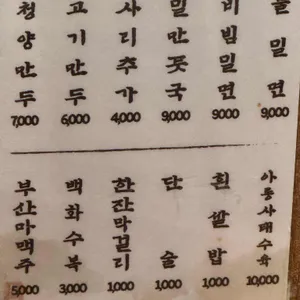 청양만두 7,000
고기만두 6,000
사리추가 4,000
밀만둣국 9,000
비빔밀면 9000
물밀면 9,000
부산마맥주 5,000
백화수복 3,000
한잔막걸리 1,000
단술 1,000
흰쌀밥 1,000
아롱사태수육 10,000